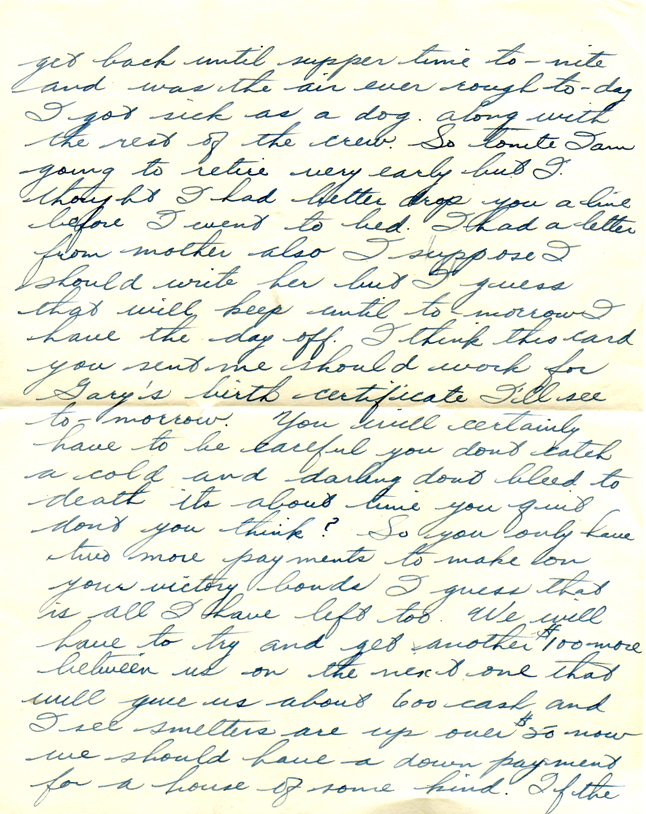 get back until supper time to-nite
and was the air ever rough to-day
I got sick as a dog. along with
the rest of the crew. So tonite I am
going to retire very early but I
thought I had better drop you a line
before I went to bed. I had a letter
from mother also I suppose I
should write her but I guess
that will keep until to-morrow I
have the day off. I think this card
you sent me should work for
Gary's birth certificate I'll see
to-morrow. You will certainly
have to be careful you dont catch
a cold and darling dont bleed to
death its about time you quit
dont you think? So you only have
two more payments to make on
your victory bonds I guess that
is all I have left too. We will
have to try and get another $100 more
between us on the next one that
will give us about 600 cash and
I see smelters are up over $50 now
we should have a down payment
for a house of some kind. If the